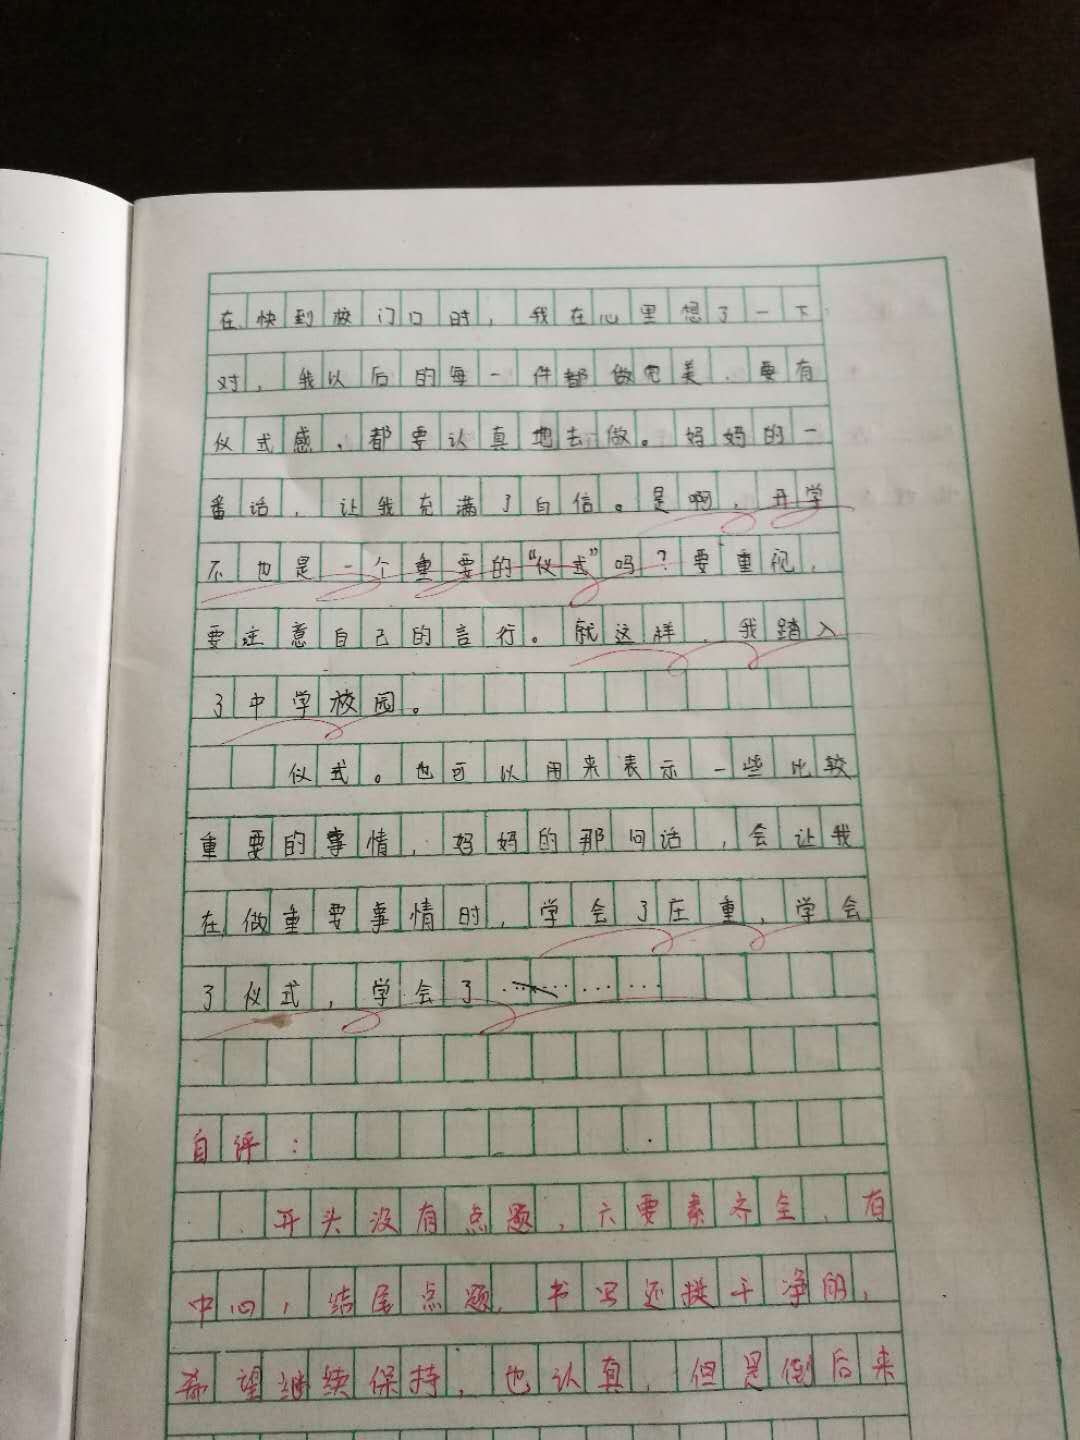 在快到校门口时，我在心里想了一下
对，我以后的每一件都做完美，要有
仪式感，都要认真地去做。妈妈的一
番话，让我充满了自信。是啊，开学
不也是一个重要的“仪式”吗？要重视，
要注意自己的言行。就这样，我踏入
了中学校园。
仪式。也可以用来表示一些比较
重要的事情，妈妈的那句话，会让我
在做重要事情时，学会了庄重，学会
了仪式，学会了…………
自评：
开头没有点题，六要素齐全，有
中心，结尾点题，书写还挺干净的，
希望继续保持，也认真，但是倒后来